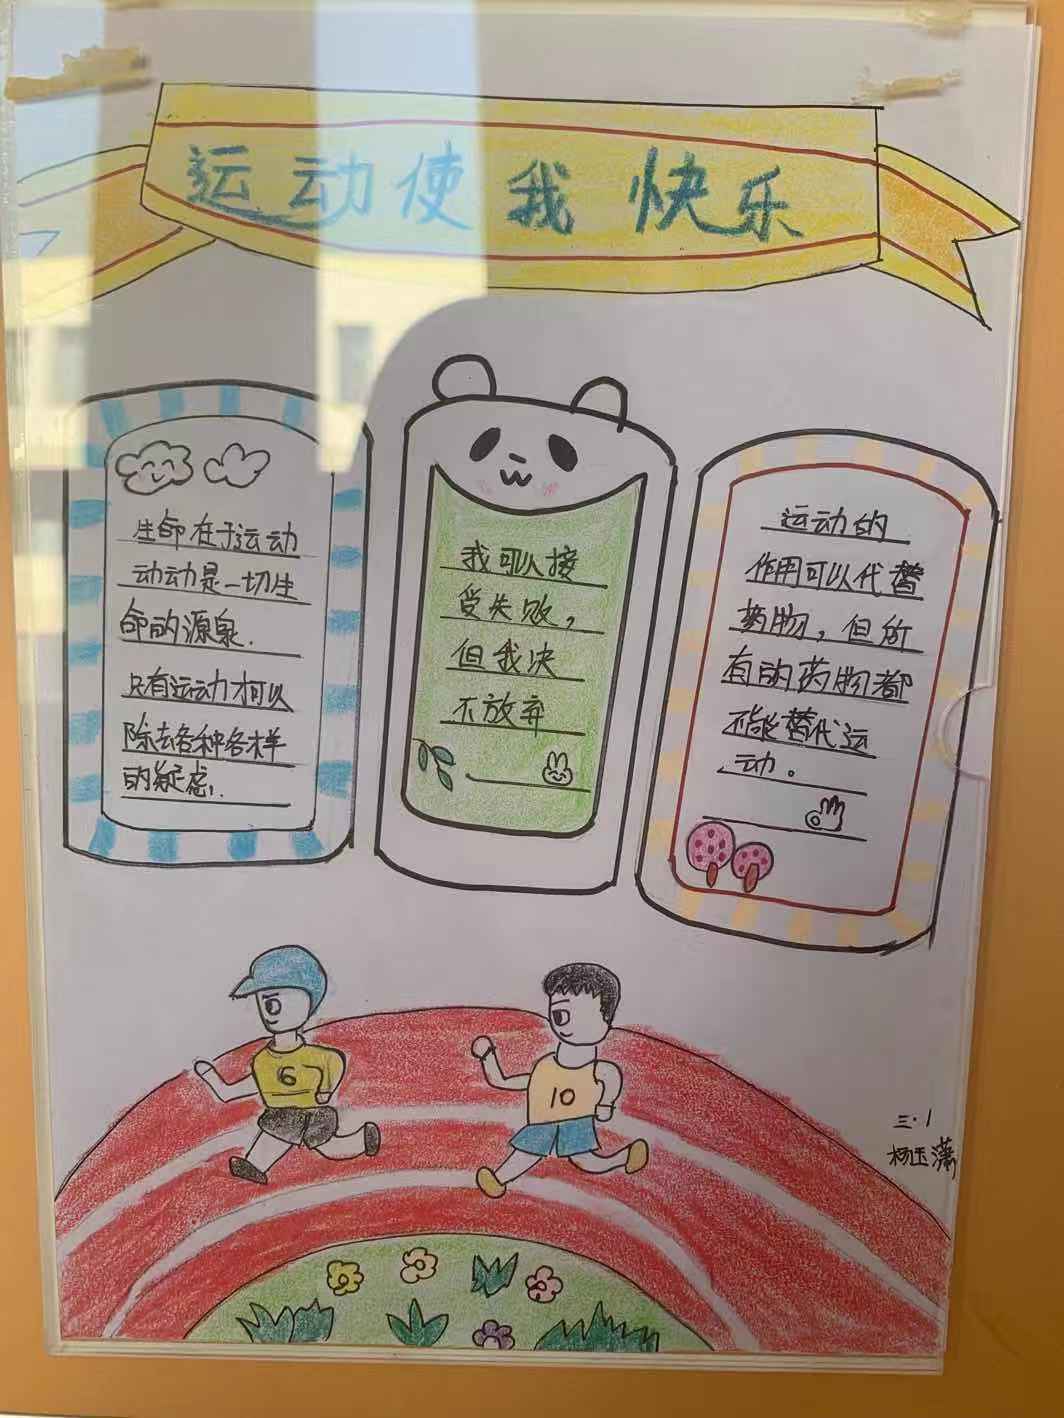 运动使我快乐
生命在于运动
动动是一切生
命的源泉.
只有运动才可以
除去各种各样
的疑虑,.
我可以接
受失败，
但我决
不放弃
运动的
作用可以代替
药物，但所
有的药物都
不能替代运
动。
6
10
三.1
杨玉潇